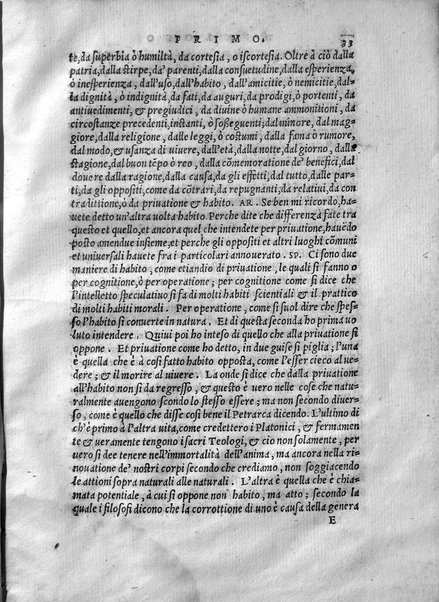 PRIMO. 33
te, da superbia ò humiltà, da cortesia, o iscortesia. Oltre à ciò dalla
patria, dalla stirpe, da' parenti, dalla consuetudine, dalla esperienza,
ò inesperienza, dall'uso, dall'habito, dall'amicitie, ò nemicitie, dal
la dignità, ò indignità, da fati, da auguri, da prodigi, ò portenti, da
antiuedimenti, & pregiudici, da diuine ò humane ammonitioni, da
circostanze precedenti, instanti, ò sosseguenti; dal minore, dal mag=
giore, dalla religione, dalle leggi, ò costumi, dalla fama ò rumore,
dal modo, & usanza di uiuere, dall'età, dalla notte, dal giorno, dalla
stagione, dal buon tẽpo ò reo, dalla cõmemoratione de' benefici, dal
douere dalla ragione, dalla causa, da gli effetti, dal tutto, dalle par=
ti, da gli oppositi, come da cõtrari, da repugnanti, da relatiui, da con
tradittione, ò da priuatione & habito. AR. Se ben mi ricordo, ha=
uete detto un'altra uolta habito. Perche dite che differenza fate tra
questo et quello, et ancora quel che intendete per priuatione, hauẽdo
posto amendue insieme, et perche gli oppositi et altri luoghi cõmuni
et uniuersali hauete fra i particolari annouerato. SP. Ci sono due
maniere di habito, come etiandio di priuatione, le quali si fanno o
per cognitione, ò per operatione; per cognitione come si dice che
l'intelletto speculatiuo si fa di molti habiti scientiali & il prattico
di molti habiti morali. Per operatione, come si suol dire che spes=
so l'habito si conuerte in natura. Et di questa seconda ho prima uo
luto intendere. Quiui poi ho inteso di quello che alla priuatione si
oppone. Et priuatione come ho detto, in due guise si piglia; l'una
è quella che è à cosi fatto habito opposta, come l'esser cieco al ue=
dere; & il morire al uiuere. La onde si dice che dalla priuatione
all'habito non si da regresso, & questo è uero nelle cose che natu=
ralmente auengono secondo lo stesso essere; ma non secondo diuer=
so, come è quello che disse cosi bene il Petrarca dicendo. L'ultimo di
ch'è primo à l'altra uita, come credettero i Platonici, & fermamen
te & ueramente tengono i sacri Teologi, & ciò non solamente, per
uero si dee tenere nell'immortalità dell'anima, ma ancora nella ri=
nouatione de' nostri corpi secondo che crediamo, non soggiacendo
le attioni sopra naturali alle naturali. L'altra è quella che è chia=
mata potentiale, à cui si oppone non habito, ma atto; secondo la
quale i filosofi dicono che la corrottione di uno è causa della genera
E